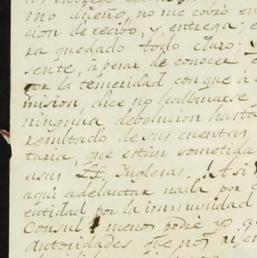 mo dueño, no me cobró en
cion de recibo, y, entrega; e
ra quedado todo claro; y
sente, á pesar de conocer
por la temeridad con que á
mision, dice no hallanarse
ninguna debolucion hasta
resultado de sus cuentas
taria, que están sometida
a sus Inglesas. ¡Asi
aqui adelantar nada por
entidad por la inmunidad
Consul menos podré yo
autoridades que nos